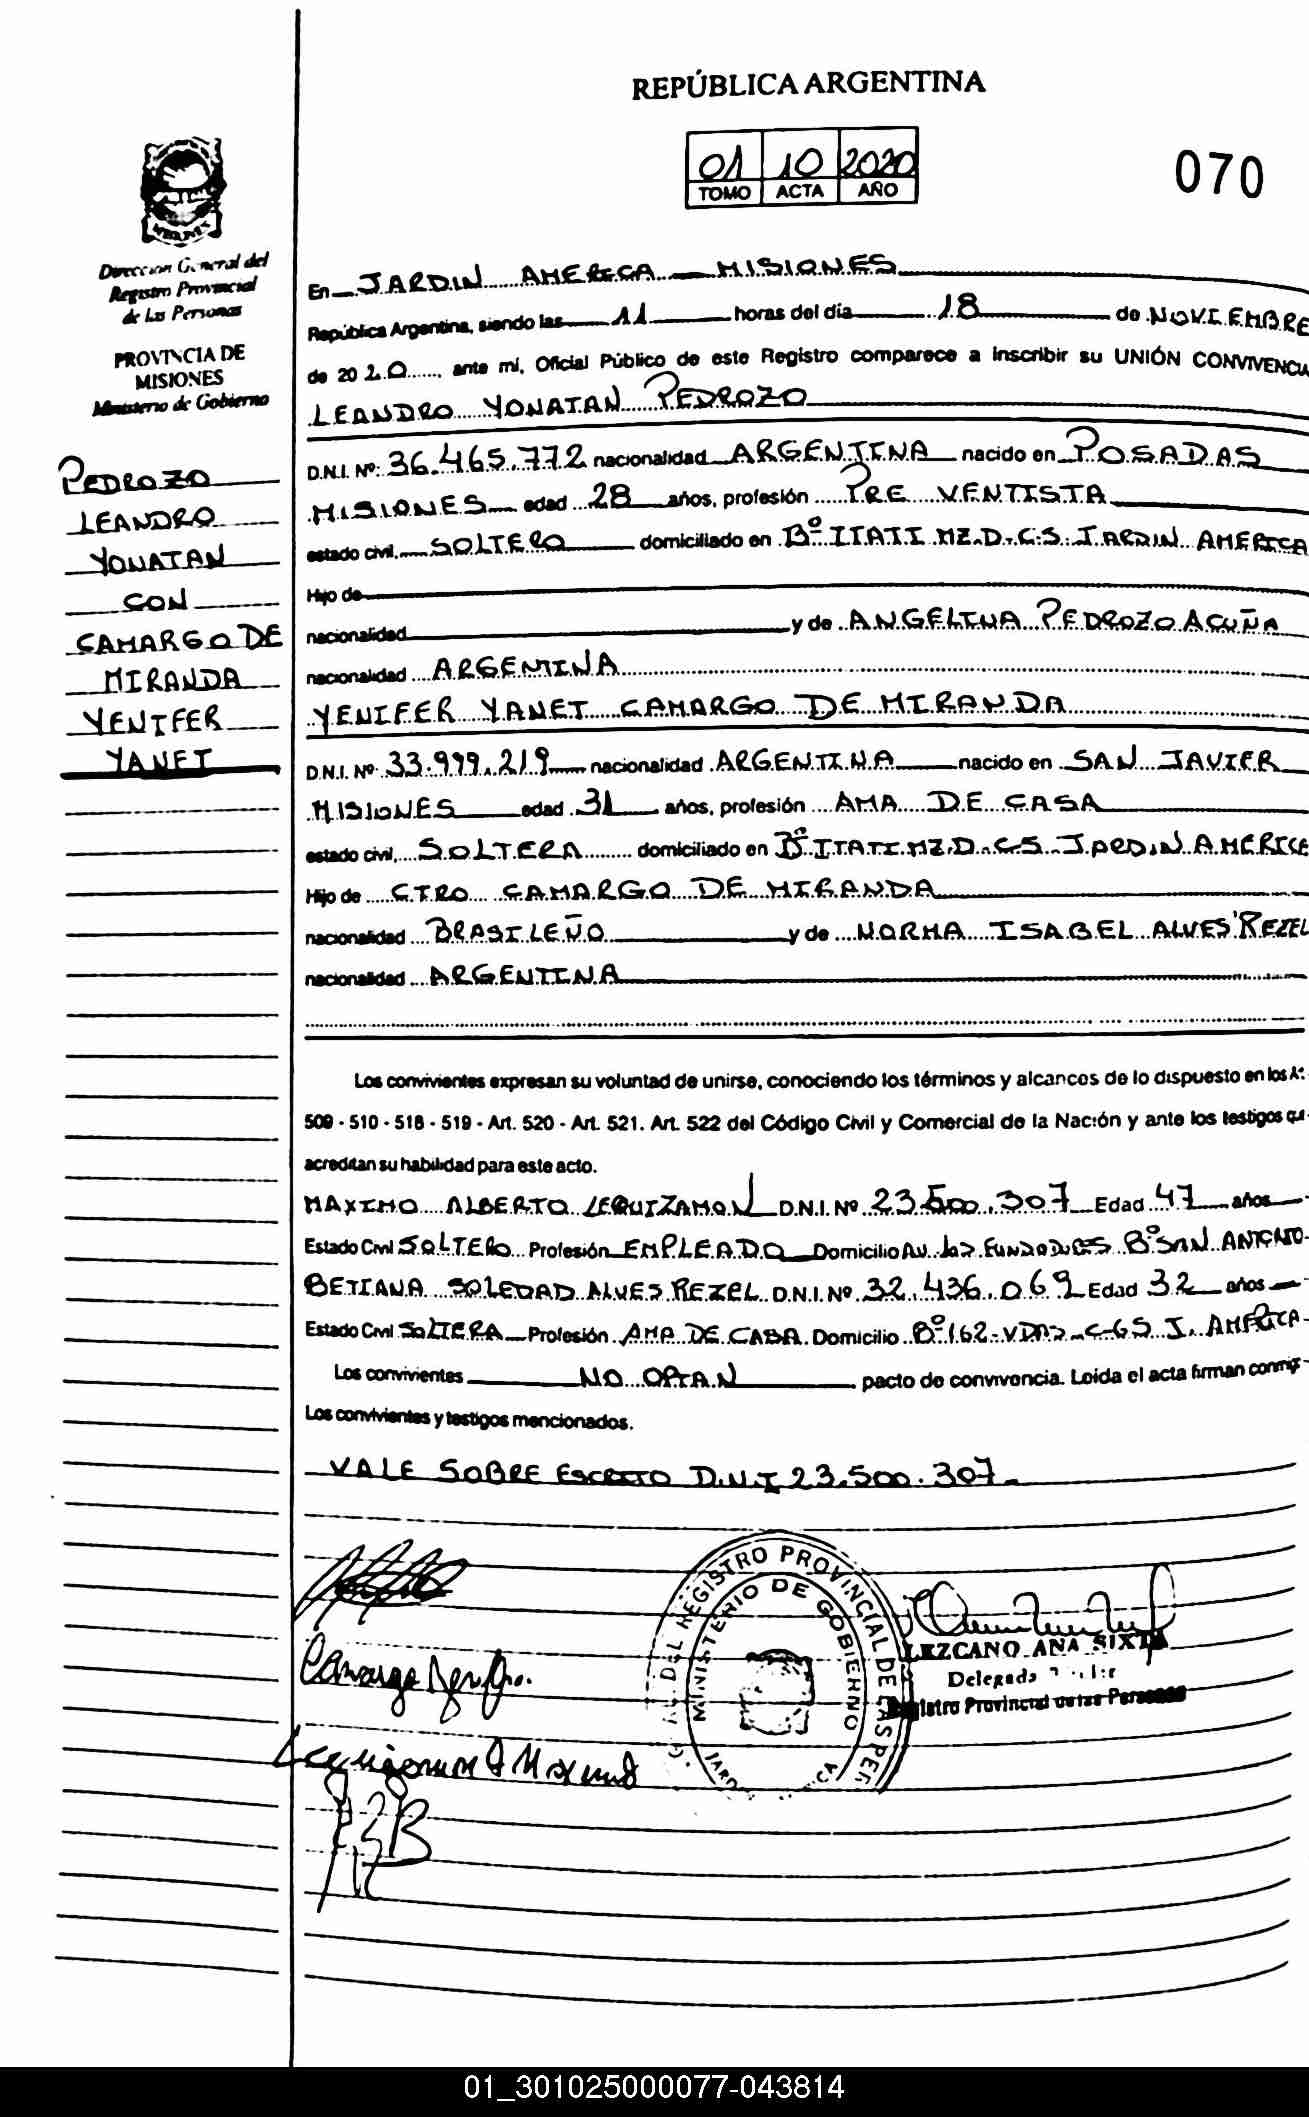 REPÚBLICA ARGENTINA
01 10 2020
TOMO ACTA AÑO
070
Dirección General del
Registro Provincial
de las Personas
PROVINCIA DE
MISIONES
Ministerio de Gobierno
PEDROZO
LEANDRO
YONATAN
CON
CAMARGO DE
MIRANDA
YENIFER
YANET
En JARDIN AMERICA - MISIONES
República Argentina, siendo las 11 horas del día 18 de NOVIEMBRE
de 2020, ante mí, Oficial Público de este Registro comparece a inscribir su UNIÓN CONVIVENCIA
LEANDRO YONATAN PEDROZO
D.N.I. Nº: 36.465.772 nacionalidad ARGENTINA nacido en POSADAS
MISIONES edad 28 años, profesión PRE VENTISTA
estado civil, SOLTERO domiciliado en Bº ITATI MZ.D-C.5. JARDIN AMERICA
Hijo de
nacionalidad y de ANGELINA PEDROZO ACUÑA
nacionalidad ARGENTINA
YENIFER YANET CAMARGO DE MIRANDA
D.N.I. Nº: 33.999.219 nacionalidad ARGENTINA nacido en SAN JAVIER
MISIONES edad 31 años, profesión AMA DE CASA
estado civil, SOLTERA domiciliado en Bº ITATI.MZ.D.-C-5-JARDIN AMERICA
Hijo de CIRO CAMARGO DE MIRANDA
nacionalidad BRASILEÑO y de NORMA ISABEL ALVES REZEL
nacionalidad ARGENTINA
Los convivientes expresan su voluntad de unirse, conociendo los términos y alcances de lo dispuesto en los
509 - 510 - 518 - 519 - Art. 520 - Art. 521. Art. 522 del Código Civil y Comercial de la Nación y ante los testigos
acreditan su habilidad para este acto.
MAXIMO ALBERTO LEQUIZAMON D.N.I. Nº 23.500.307 Edad 47 años
Estado Civil SOLTERO Profesión EMPLEADO Domicilio AV. LOS FUNDADORES Bº SAN ANTONIO
BETIANA SOLEDAD ALVES REZEL D.N.I. Nº 32.436.069 Edad 32 años
Estado Civil SOLTERA Profesión AMA DE CASA Domicilio Bº 162-VDAS-C-65 J. AMERICA
Los convivientes NO OPTAN pacto de convivencia. Leída el acta firman
Los convivientes y testigos mencionados.
VALE SOBRE ESCRITO D.N.I 23.500.307
DEL REGISTRO PROVINCIAL DE LAS PER
MINISTERIO DE GOBIERNO
LEZCANO ANA SIXTA
Registro Provincial de las Personas
01_301025000077-043814